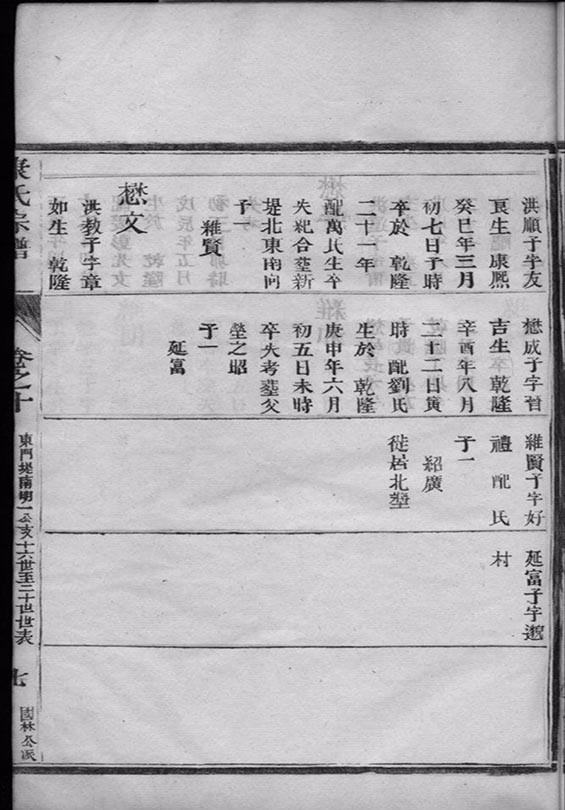 洪順子字友
良生 康熙
癸巳年三月
初七日子時
卒於 乾隆
二十一年
配萬氏生卒
失紀合塟新
堤北東南向
子一
維賢
懋文
洪教子字章
如生 乾隆
懋成子字晉
吉生 乾隆
辛酉年八月
二十二日寅
時 配劉氏
生於 乾隆
庚申年六月
初五日未時
卒失考塟父
塋之昭
子一
延富
維賢子字好
禮 配 氏
子一
紹廣
徙居北塋
延富子字
村
氏宗譜
卷之十
東門堤南明一公支十六世至二十世世表
七
國林公派